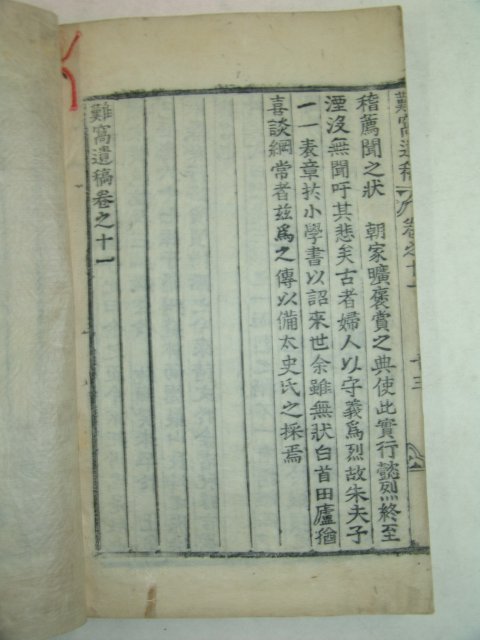 難窩遺稿 卷之十一 十三
稽薦聞之狀 朝家曠褒賞之典使此實行懿烈終至
湮沒無聞吁其悲矣古者婦人以守義爲烈故朱夫子
一一表章於小學書以詔來世余雖無狀白首田廬猶
喜談綱常者玆爲之傳以備太史氏之採焉
難窩遺稿卷之十一